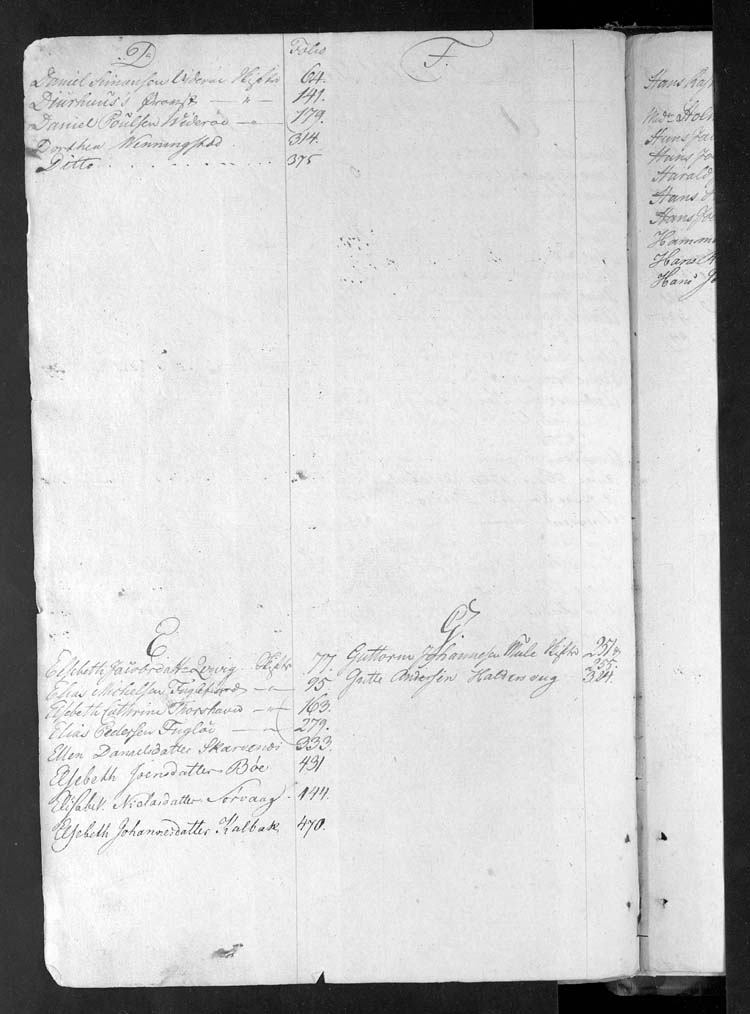 D.
Folio
Daniel Simonsen Viderøe Skifte 64.
Diurhuus's 141.
Daniel Poulsen Widerøe — 179.
Dorthea Wenningsted 314.
Ditto 375
F.
E
Elsebeth Jacobsdatter Skifte 77.
Elias Michelsen Fuglefjord — 95
Elsebeth Cathrine Thorshavn — 163.
Elias Pedersen Fugløe — 279.
Ellen Danielsdatter Skarvenæs 333.
Elsebeth Joensdatter Bøe 431
Elisabet Niclasdatter Sørvaag 444.
Elsebeth Johannesdatter Kalbak 470.
G.
Guttorm Johannesen Mule Skifte
255.
Gutte Andersen Haldersvug 324.
Hans
Hans
Hans
Harald
Hans
Hans
Hans
Hans